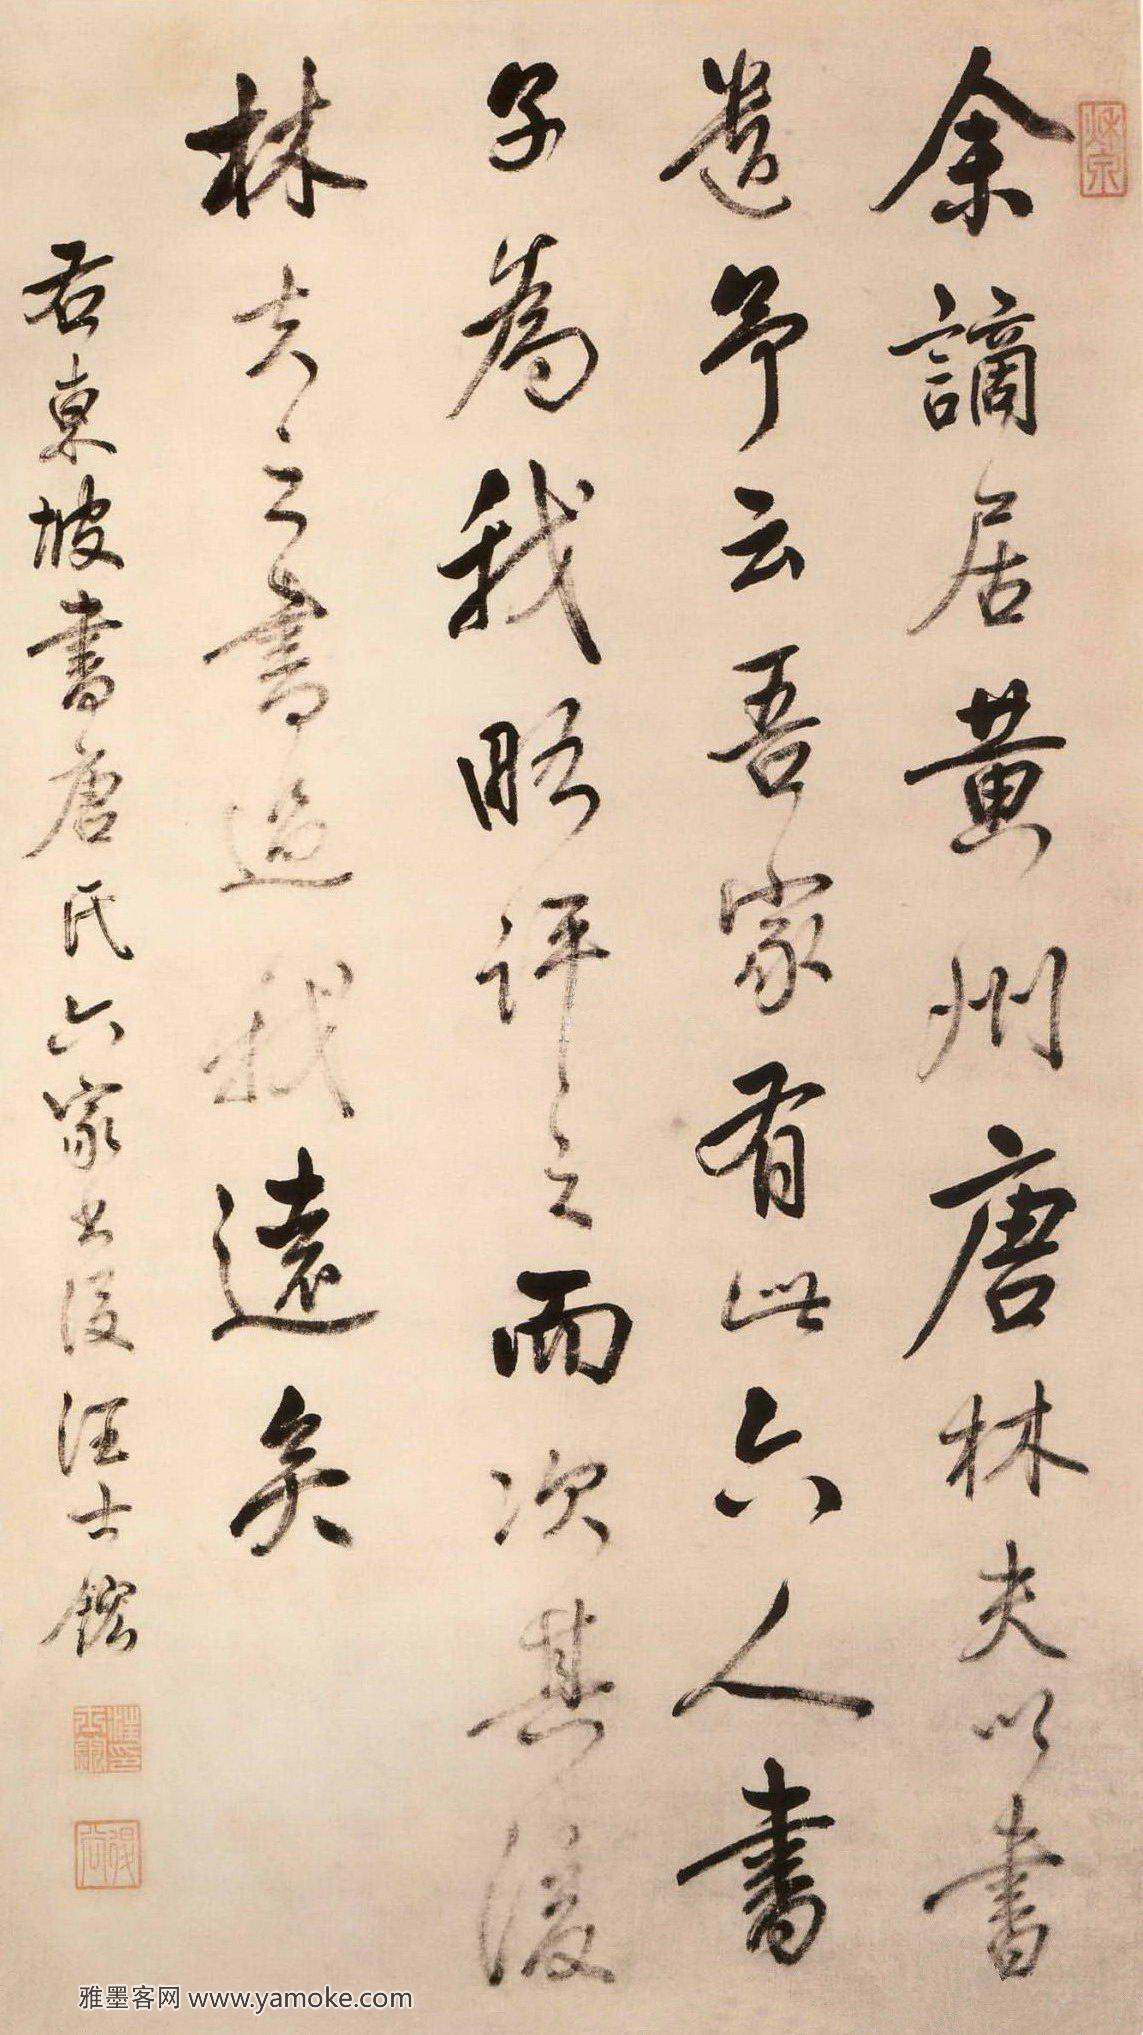 余謫居黄州唐林夫以書
遺予云吾家有此六人書
子為我略評之而次其後
林夫之書過我遠矣
右東坡書唐氏六家書後汪士鋐
雅墨客网 www.yamoke.com